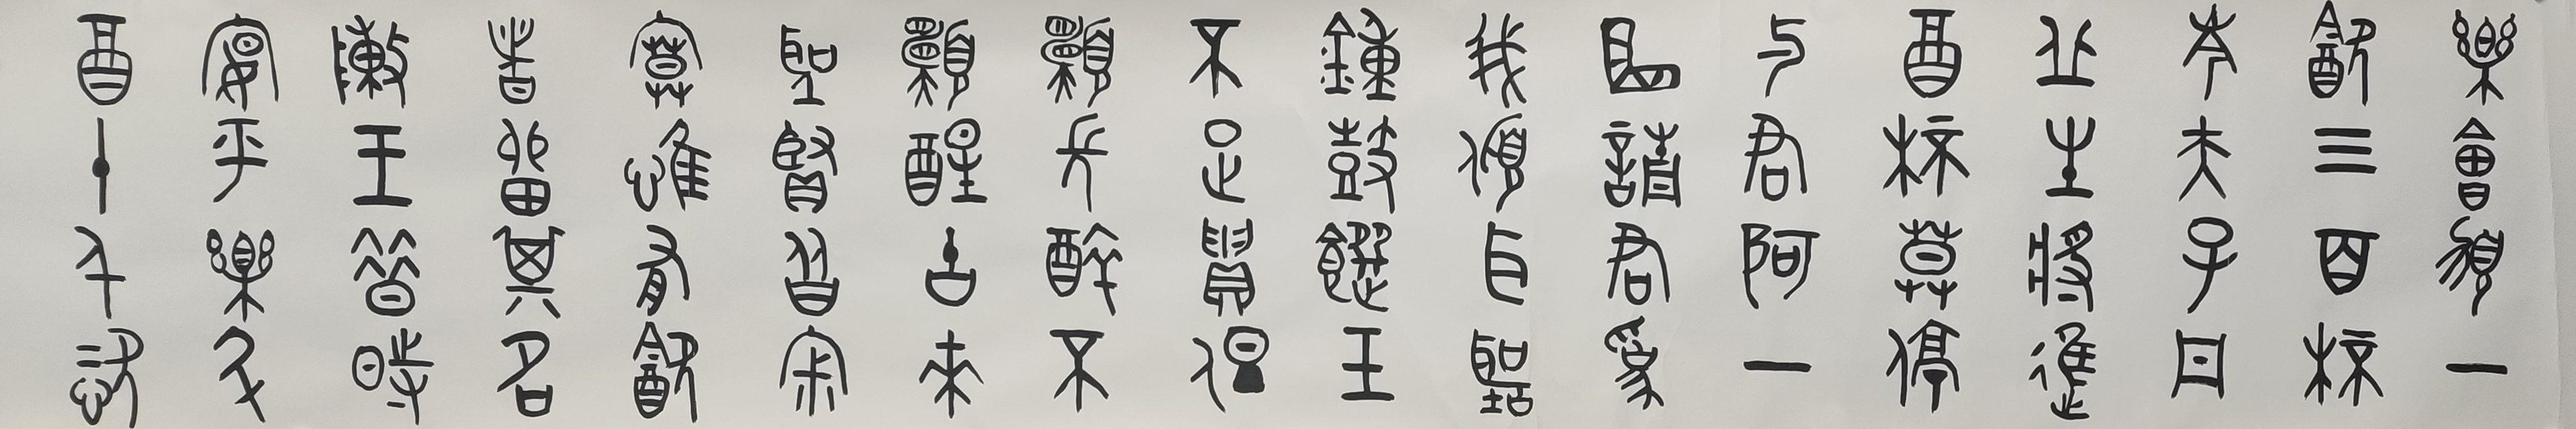 樂會須一
飲三百杯
岑夫子丹
丘生將進
酒杯莫停
与君歌一
曲請君為
我傾耳聽
鐘鼓饌玉
不足貴但
願長醉不
願醒古來
聖賢皆寂
寞惟有飲
者留其名
陳王昔時
宴平樂斗
酒十千恣